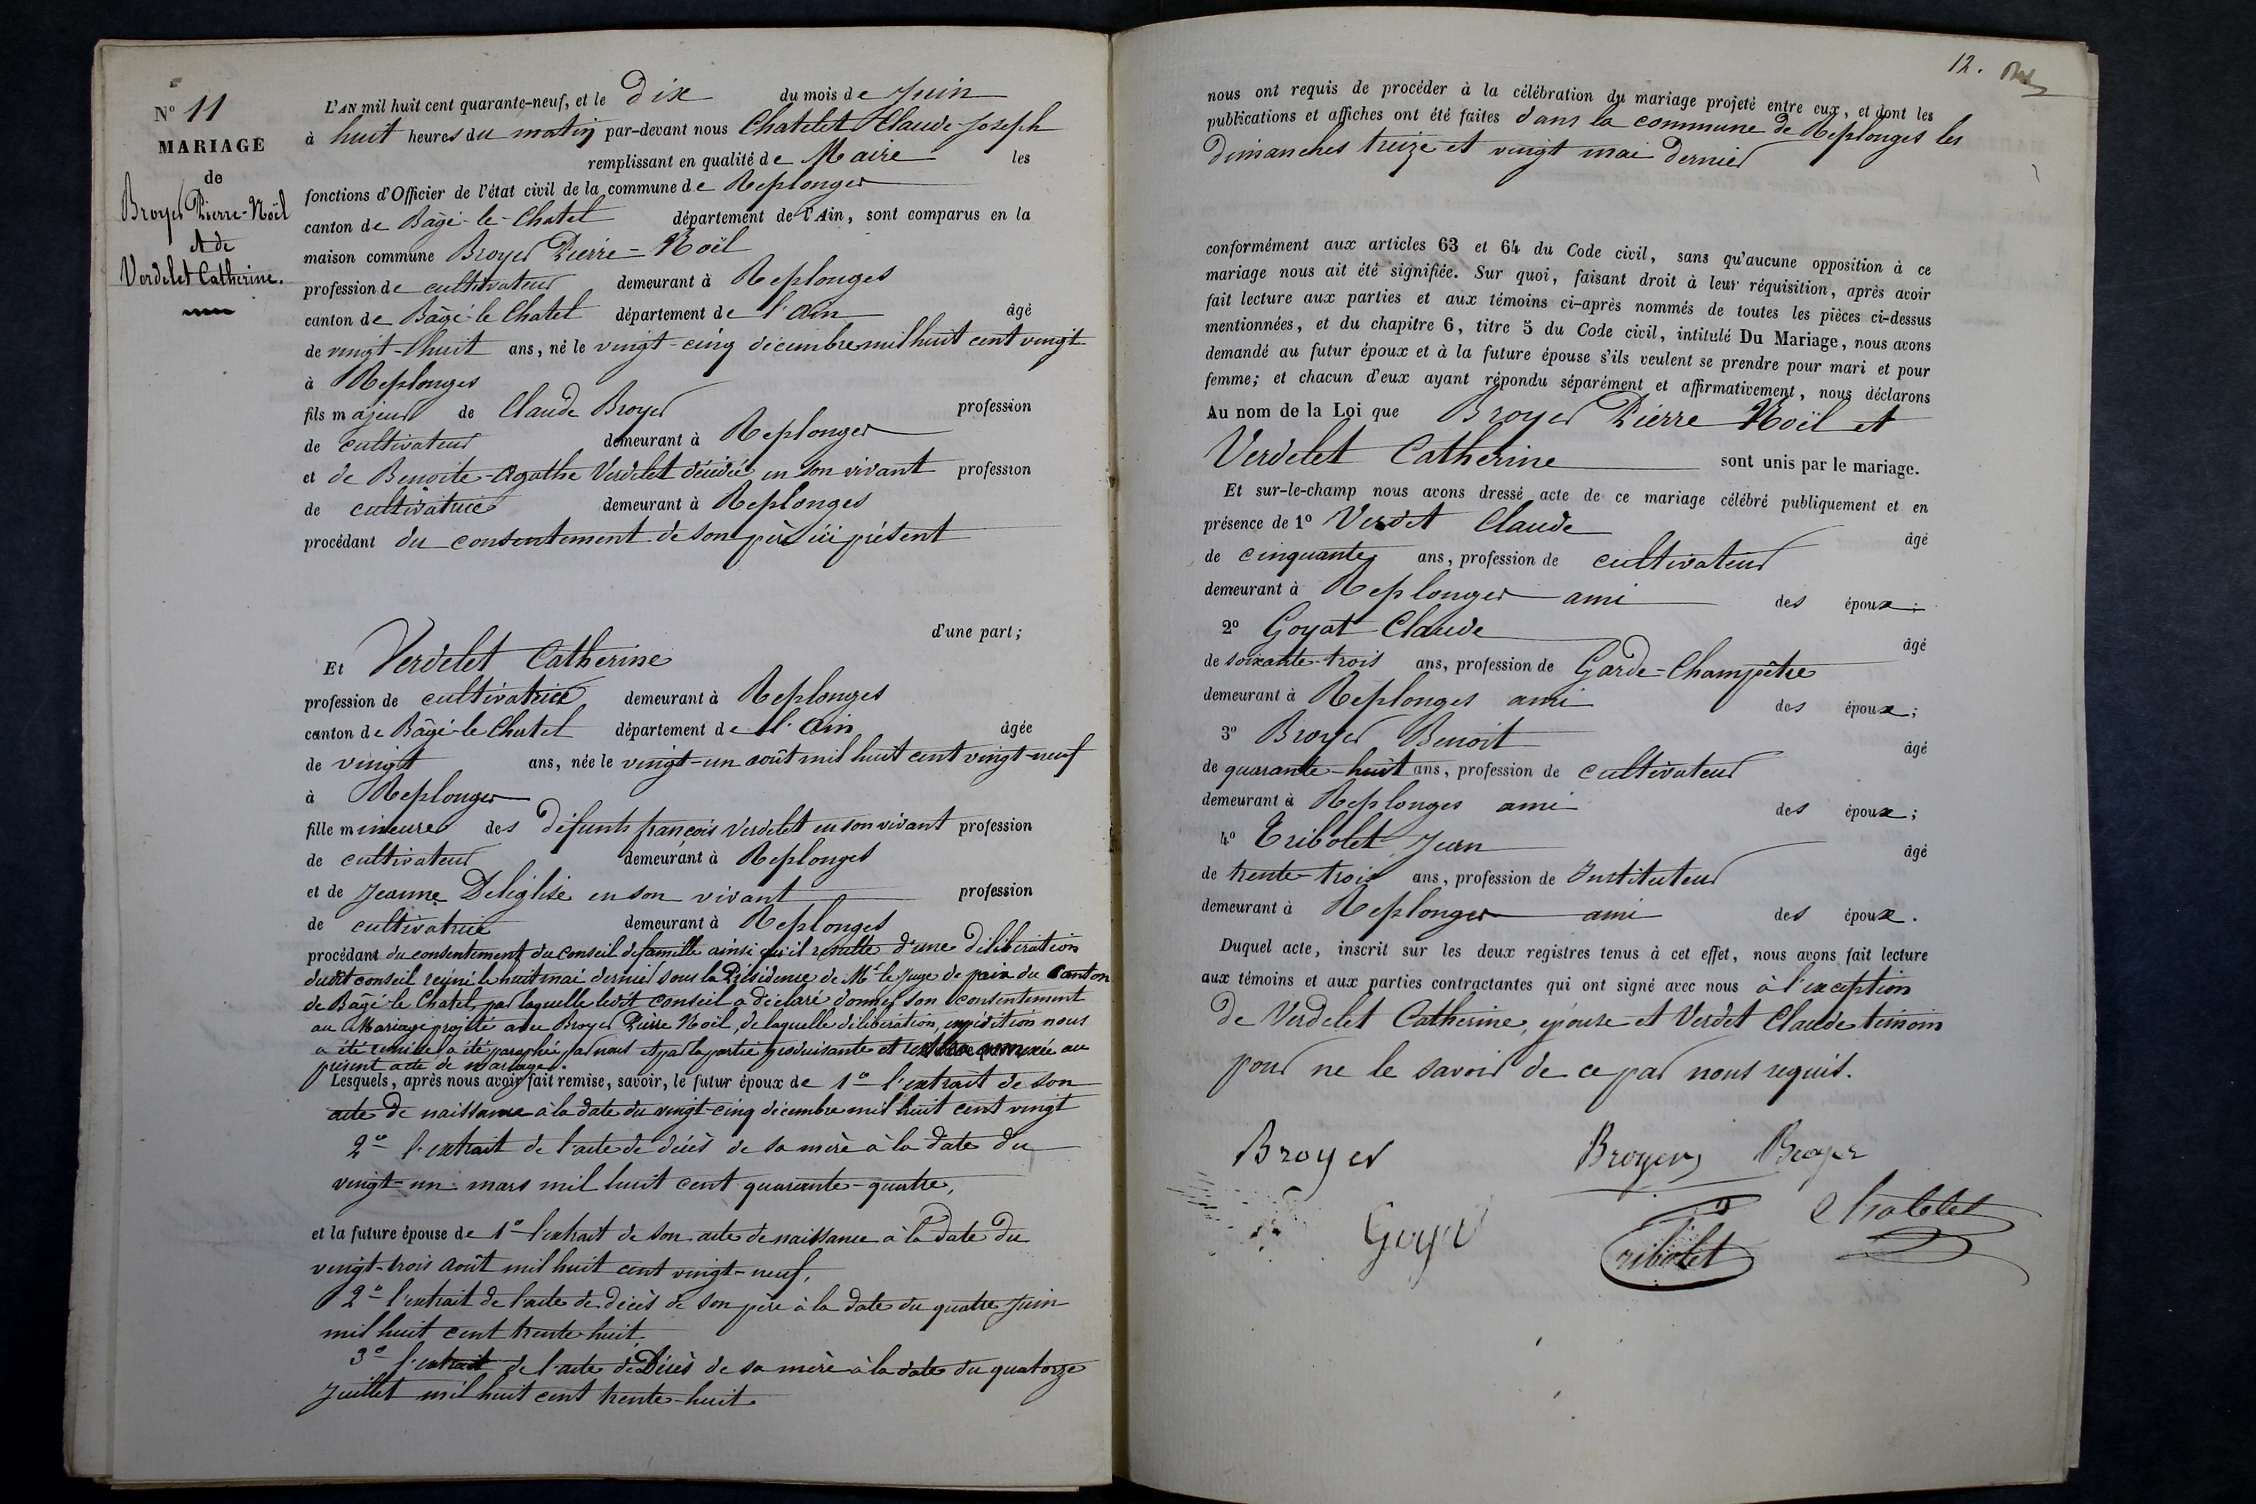 N° 11
MARIAGE
de
Broyer Pierre-Noël
et de
Verdelet Catherine.
L'AN mil huit cent quarante-neuf, et le dix du mois de Juin
à huit heures du matin par-devant nous Chatelet Claude-Joseph
remplissant en qualité de Maire les
fonctions d'Officier de l'état civil de la commune de Replonges
canton de Bâgé-le-Chatel département de l'Ain, sont comparus en la
maison commune Broyer Pierre-Noël
profession de cultivateur demeurant à Replonges
canton de Bâgé-le Chatel département de l'Ain âgé
de vingt-huit ans, né le vingt-cinq décembre mil huit cent vingt
à Replonges
fils majeur de Claude Broyer profession
de cultivateur demeurant à Replonges
et de Benoite-Agathe Verdelet décédée en son vivant profession
de cultivatrice demeurant à Replonges
procédant du consentement de son père ici présent
d'une part;
Et Verdelet Catherine
profession de cultivatrice demeurant à Replonges
canton de Bâgé-le Chatel département de l'Ain âgée
de vingt ans, née le vingt-un août mil huit cent vingt-neuf
à Replonges
fille mineure des défunts françois Verdelet en son vivant profession
de cultivateur demeurant à Replonges
et de Jeanne Deléglise en son vivant profession
de cultivatrice demeurant à Replonges
procédant du consentement du conseil de famille ainsi qu'il résulte d'une délibération
dudit conseil réuni le huit mai dernier sous la Présidence de Mr le Juge de paix du Canton
de Bâgé-le Chatel, par laquelle ledit conseil a déclaré donner son consentement
au Mariage projeté avec Broyer Pierre Noël, de laquelle délibération, expédition nous
a été remise a été paraphée par nous et par la partie produisante et annexée au
présent acte de mariage.
Lesquels, après nous avoir fait remise, savoir, le futur époux de 1° l'extrait de son
acte de naissance à la date du vingt-cinq décembre mil huit cent vingt
2° l'extrait de l'acte de décès de sa mère à la date du
vingt-un mars mil huit cent quarante-quatre,
et la future épouse de 1° l'extrait de son acte de naissance à la date du
vingt-trois août mil huit cent vingt-neuf,
2° l'extrait de l'acte de décès de son père à la date du quatre Juin
mil huit cent trente huit.
3° l'extrait de l'acte de Décès de sa mère à la date du quatorze
Juillet mil huit cent trente-huit
12.
nous ont requis de procéder à la célébration du mariage projeté entre eux, et dont les
publications et affiches ont été faites dans la commune de Replonges les
dimanches treize et vingt mai dernier
conformément aux articles 63 et 64 du Code civil, sans qu'aucune opposition à ce
mariage nous ait été signifiée. Sur quoi, faisant droit à leur réquisition, après avoir
fait lecture aux parties et aux témoins ci-après nommés de toutes les pièces ci-dessus
mentionnées, et du chapitre 6, titre 5 du Code civil, intitulé Du Mariage, nous avons
demandé au futur époux et à la future épouse s'ils veulent se prendre pour mari et pour
femme; et chacun d'eux ayant répondu séparément et affirmativement, nous déclarons
Au nom de la Loi que Broyer Pierre Noël et
Verdelet Catherine sont unis par le mariage.
Et sur-le-champ nous avons dressé acte de ce mariage célébré publiquement et en
présence de 1° Verdet Claude âgé
de cinquante ans, profession de cultivateur
demeurant à Replonges ami des époux;
2° Goyat Claude âgé
de soixante-trois ans, profession de Garde-Champêtre
demeurant à Replonges ami des époux;
3° Broyer Benoit âgé
de quarante-huit ans, profession de cultivateur
demeurant à Replonges ami des époux;
4° Tribolet Jean âgé
de trente-trois ans, profession de Instituteur
demeurant à Replonges ami des époux.
Duquel acte, inscrit sur les deux registres tenus à cet effet, nous avons fait lecture
aux témoins et aux parties contractantes qui ont signé avec nous à l'exception
de Verdelet Catherine, épouse et Verdet Claude témoin
pour ne le savoir de ce par nous requis.
Broyer Broyer Broyer
Chatelet
Goya
Tribolet